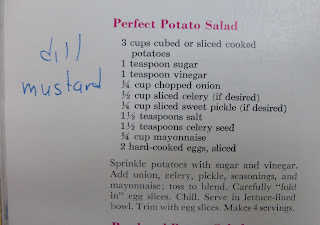 dill
mustard
Perfect Potato Salad
3 cups cubed or sliced cooked
potatoes
1 teaspoon sugar
1 teaspoon vinegar
cup chopped onion
½ cup sliced celery (if desired)
¼ cup sliced sweet pickle (if desired)
1½ teaspoons salt
1½ teaspoons celery seed
¾ cup mayonnaise
2 hard-cooked eggs, sliced
Sprinkle potatoes with sugar and vinegar.
Add onion, celery, pickle, seasonings, and
mayonnaise; toss to blend. Carefully "fold
in" egg slices. Chill. Serve in lettuce-lined
bowl. Trim with egg slices. Makes 4 servings.